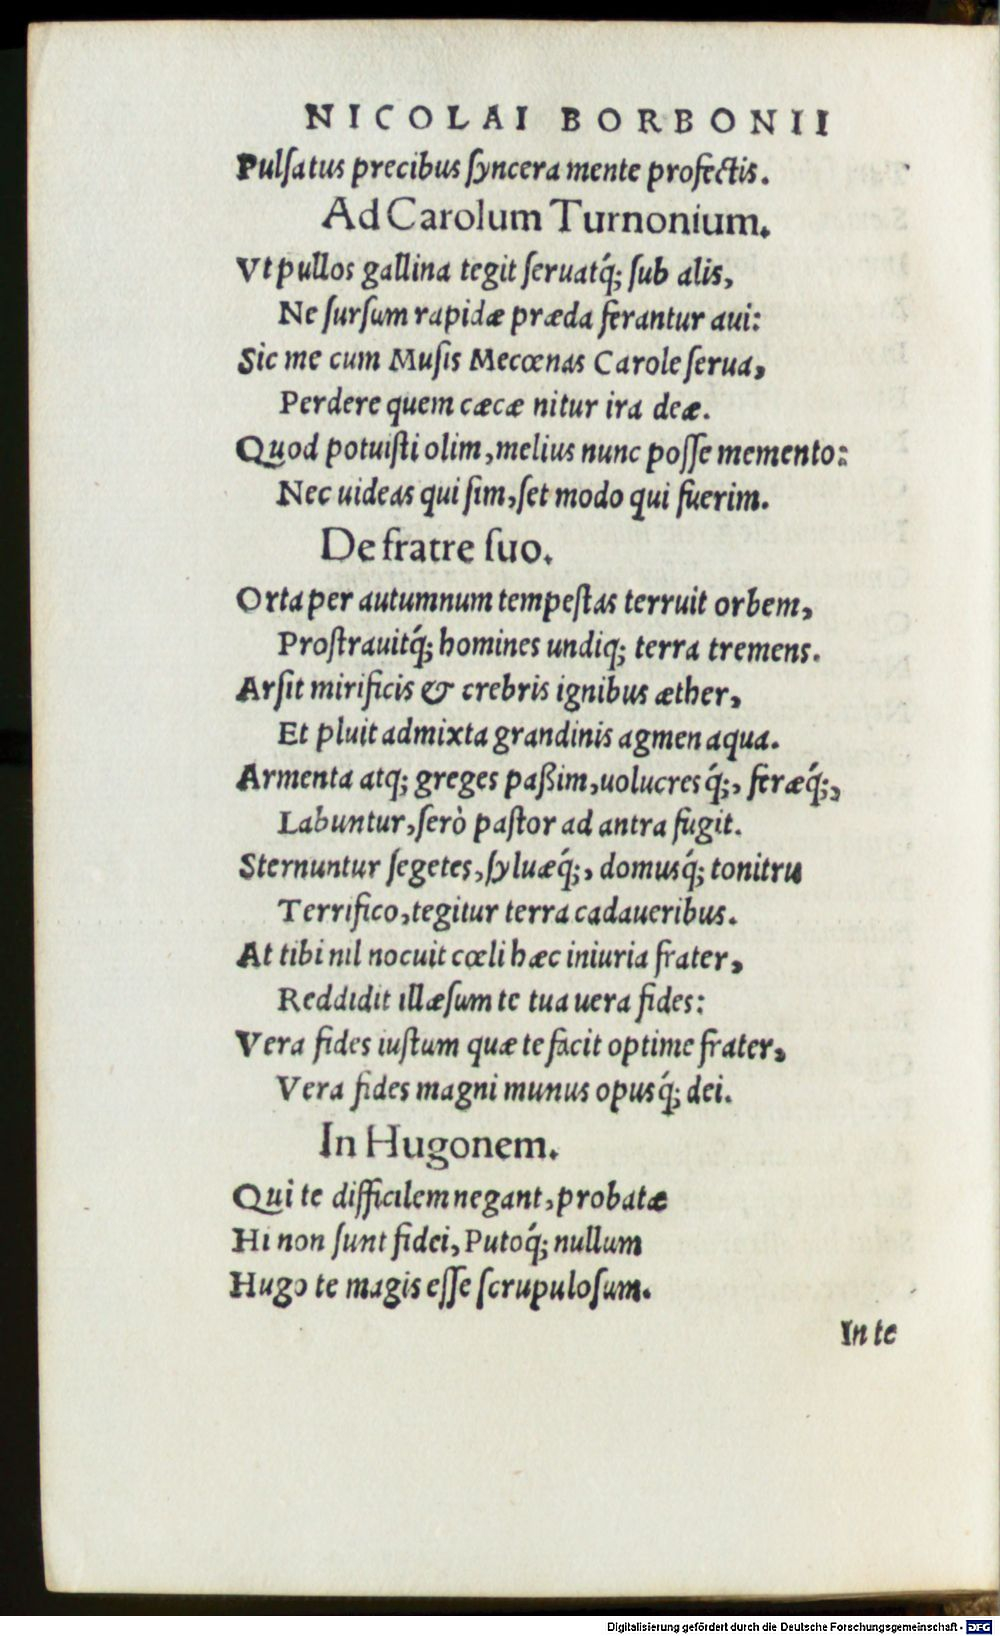 NICOLAI BORBONII
Pulſatus precibus ſyncera mente profectis.
Ad Carolum Turnonium.
Vt pullos gallina tegit ſeruatq́; ſub alis,
Ne ſurſum rapidæ præda ferantur aui:
Sic me cum Muſis Mecœnas Carole ſerua,
Perdere quem cæcæ nitur ira deæ.
Quod potuiſti olim, melius nunc poſſe memento:
Nec uideas qui ſim, ſet modo qui fuerim.
De fratre ſuo.
Orta per autumnum tempeſtas terruit orbem,
Proſtrauitq́; homines undiq; terra tremens.
Arſit mirificis & crebris ignibus æther,
Et pluit admixta grandinis agmen aqua.
Armenta atq; greges paßim, uolucresq́;, feræq́;,
Labuntur, ſerò paſtor ad antra fugit.
Sternuntur ſegetes, ſyluæq́;, domusq́; tonitru
Terrifico, tegitur terra cadaueribus.
At tibi nil nocuit cœli hæc iniuria frater,
Reddidit illæſum te tua uera fides:
Vera fides iuſtum quæ te facit optime frater,
Vera fides magni munus opusq́; dei.
In Hugonem.
Qui te difficilem negant, probatæ
Hi non ſunt fidei, Putoq́; nullum
Hugo te magis eſſe ſcrupuloſum.
In te
Digitalisierung gefördert durch die Deutsche Forschungsgemeinschaft - DFG